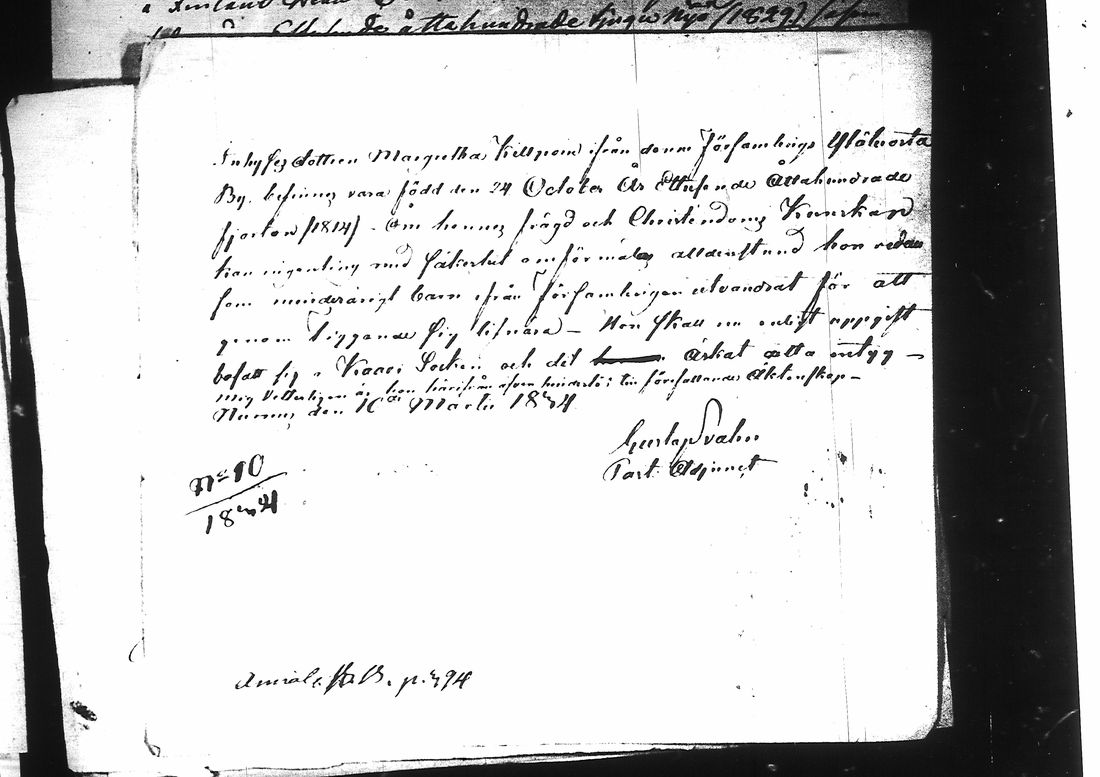 Ettusende åttahundrade tjugu nijo (1829)
Inhyses Dottren Margretha ifrån denna Församlings Yläkorsta
By, befinnes vara född den 24 October År Ettusende Åttahundrade
fjorton (1814). Om hennes frägd och Christendoms Kunskap
kan ingenting med säkerhet omförmälas alldenstund hon redan
som minderårigt barn ifrån Församlingen utvandrat för att
genom Tiggande sig lifnära – Hon skall nu enligt uppgift
befatt sig i Kaavi Socken och det äskat detta intyg –
mig vetterligen är hon härifrån äfven hinderslös till förefallande Äktenskap –
Nurmes den 16de Martii 1834
Gustaf Svahn
Past. Adjunct
No 10
1834
p. 394